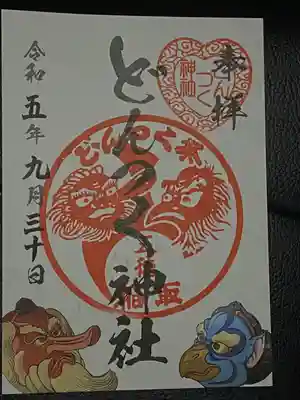 奉拝
どんつく
神社
どんつく神社
どんつく祭
令和五年九月三十日